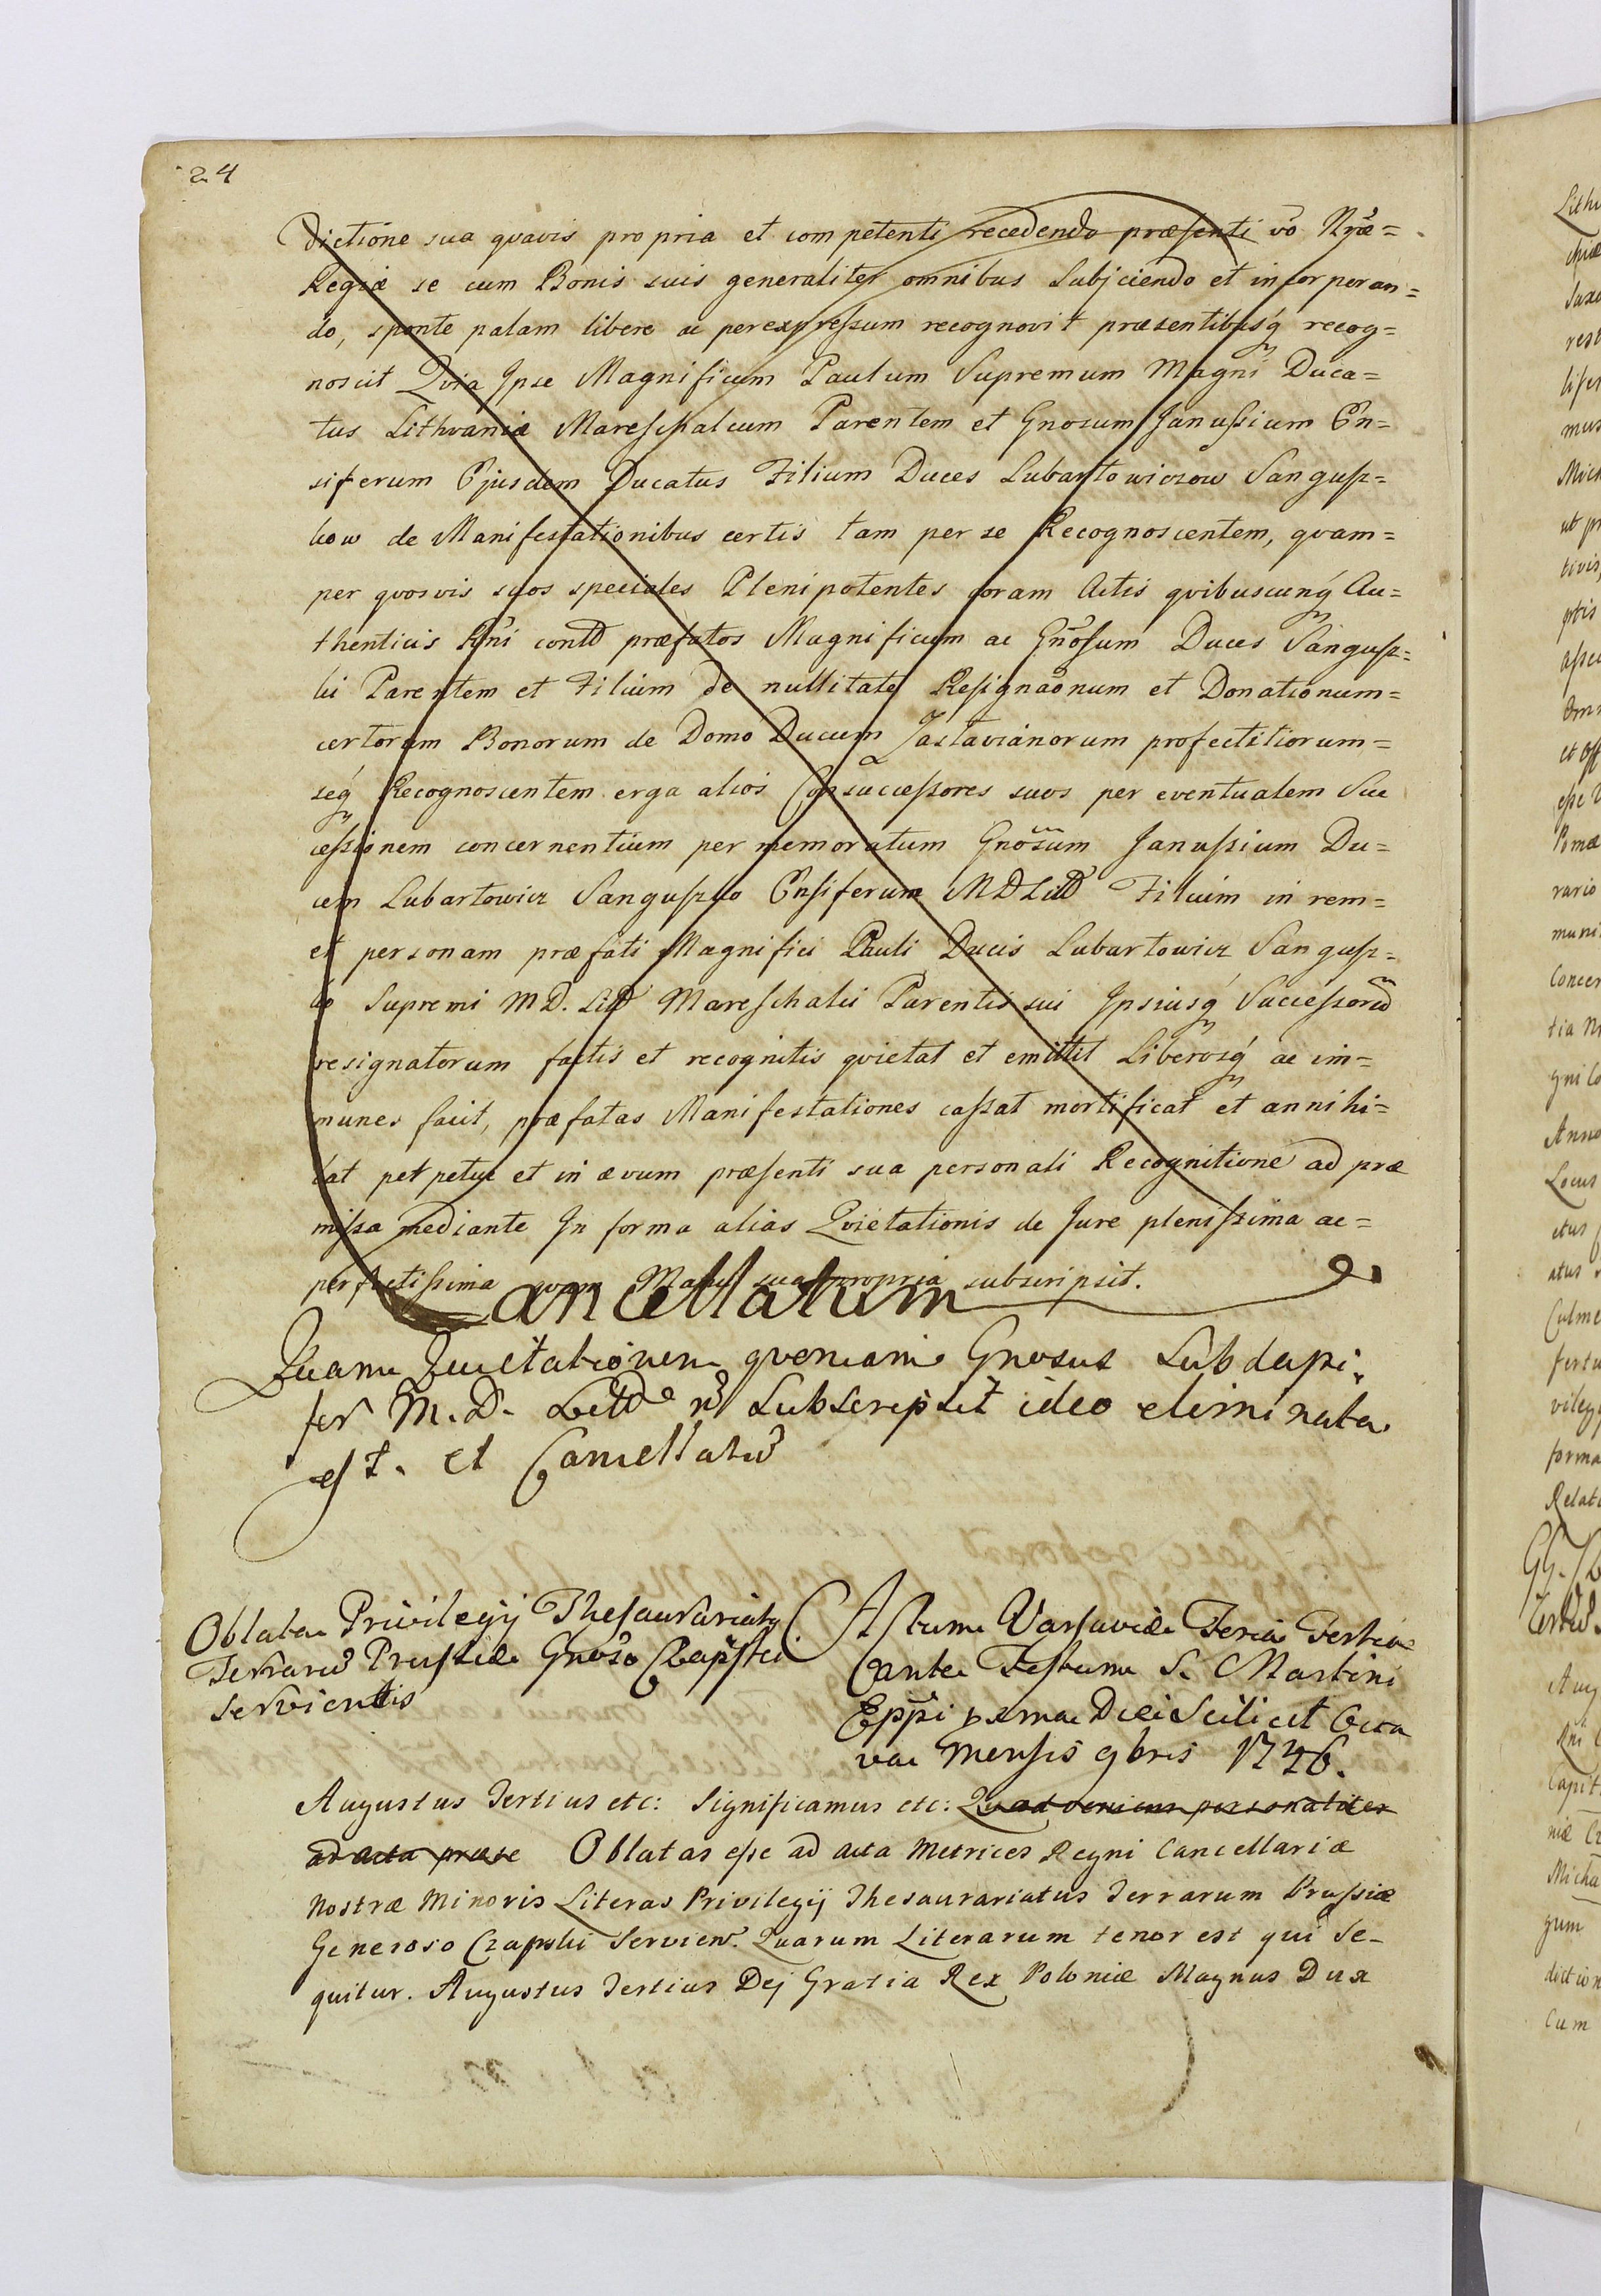 24
dictione sua qvavis propria et competenti recedendo præsenti vo Nræ=
Regiæ se cum Bonis suis generaliter omnibus Subjciendo et incorporan=
do, sponte palam libere ac per expressum recognovit præsentibusq recog=
noscit Qvia Ipse Magnificum Paulum Supremum Magni Duca=
tus Lithvaniæ Mareschalcum Parentem et Gnosum Janussium En=
siferum Ejusdem Ducatus Filium Duces Lubartowiczow Sangusz=
kow de Manifestationibus certis tam per se Recognoscentem, qvam=
per qvosvis suos speciales Plenipotentes coram Actis qvibuscunq Au=
thenticis Rni contra præfatos Magnificum ac Gnosum Duces Sangusz=
ki Parentem et Filium de nullitate Resignaonum et Donationum=
certorum Bonorum de Domo Ducum Zaslavianorum profectitiorum=
seq Recognoscentem erga alios Consuccessores suos per eventualem Suc
cessionem concernentium per memoratum Gnosum Janussium Du=
cem Lubartowicz Sanguszko Ensiferum MDLitt Filium in rem=
et personam præfati Magnifici Pauli Ducis Lubartowicz Sangusz=
ko Supremi M.D. Litt Mareschalci Parentis sui Ipsiusq Successoru
resignatorum factis et recognitis qvietat et emittit Liberosq ac im=
munes facit, præfatas Manifestationes cassat mortificat et annihi=
lat perpetue et in ævum præsenti sua personali Recognitione ad præ
missa mediante In forma alias Qvietationis de Jure plenissima ac=
perfectissima qvam Manu sua propria subscripsit.
Cancellatum
Quam Quietationem qvoniam Gnosus Subdapi,
fer M.D. Litt n Subscripsit ideo eliminata
est. et Cancellatu
Oblata Privilegij Thesaurariatq
Terraru Prussiæ Gnoso Czapski
servientis
Actum Varsaviæ Feria Tertia
ante Festum S. Martini
Eppi Diei Scilicet Octa
va Mensis 9bris 1746.
Augustus Tertius etc: Significamus etc: Quia veniens personaliter
ad acta præse Oblatas esse ad acta Metrices Regni Cancellariæ
Nostræ Minoris Literas Privilegij Thesaurariatus Terrarum Prussiæ
Generoso Czapski Servien. Quarum Literarum tenor est qui Se-
quitur. Augustus Tertius Dej Gratia Rex Poloniæ Magnus Dux